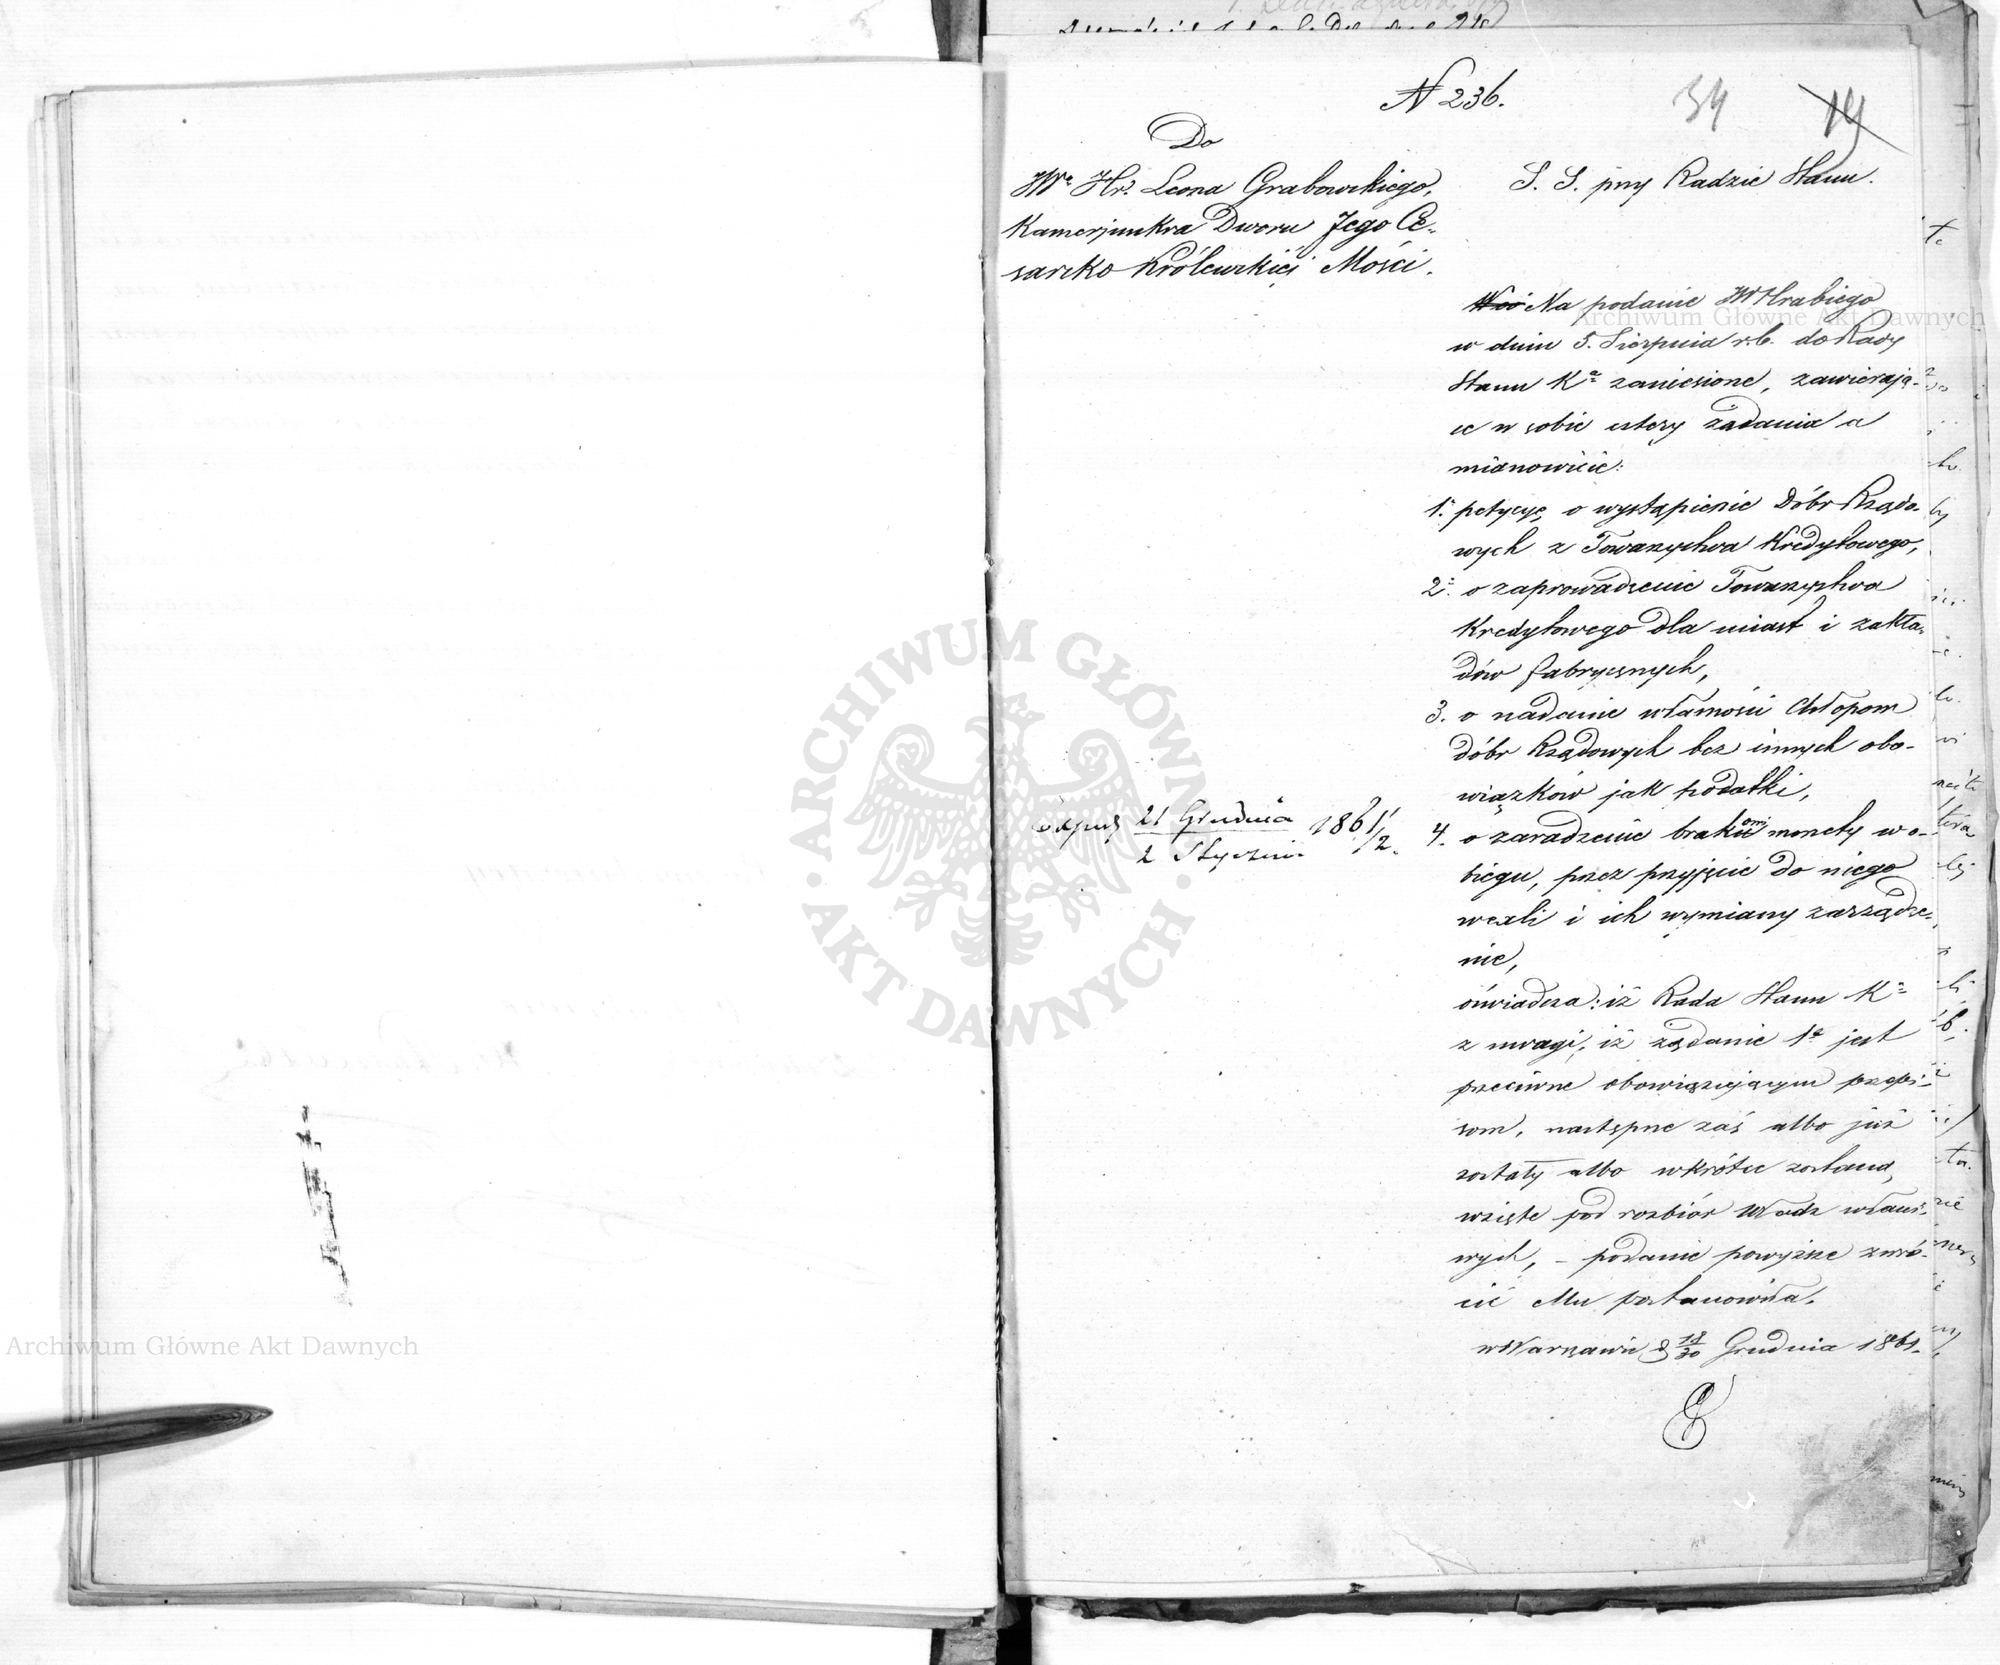 N 236.
34
19
Do
JWo Hro. Leona Grabowskiego,
Kamerjunkra Dworu Jego Ce-
sarsko Królewskiéj Mości.
S. S. przy Radzie Stanu.
Na podanie JW Hrabiego
w dniu 5. Sierpnia r.b. do Rady
Stanu Ka zaniesione, zawierają-
ce w sobie cztery żądania a
mianowicie:
1. petycyę o wystąpienie Dóbr Rządo-
wych z Towarzystwa Kredytowego,
2. o zaprowadzenie Towarzystwa
Kredytowego dla miast i zakła-
dów fabrycznych,
3. o nadanie własności Chłopom
dóbr Rządowych bez innych obo-
wiązków jak podatki,
4. o zaradzenie brakowi monety w o-
biegu, przez przyjęcie do niego
wexli i ich wymiany zarządze-
nie,
oświadcza: iż Rada Stanu Ka
z uwagi, iż żądanie 1e jest
przeciwne obowiązującym przepi-
som, następne zaś albo już
zostały albo wkrótce zostaną
wzięte pod rozbiór Władz właści-
wych, – podanie powyższe zwró-
cić Mu postanowiła.
w Warszawie d 18/30 Grudnia 1861.
Exped 21 Grudnia / 2 Stycznia 1861/2.
ARCHIWUM GŁÓWNE AKT DAWNYCH
Archiwum Główne Akt Dawnych
Archiwum Główne Akt Dawnych